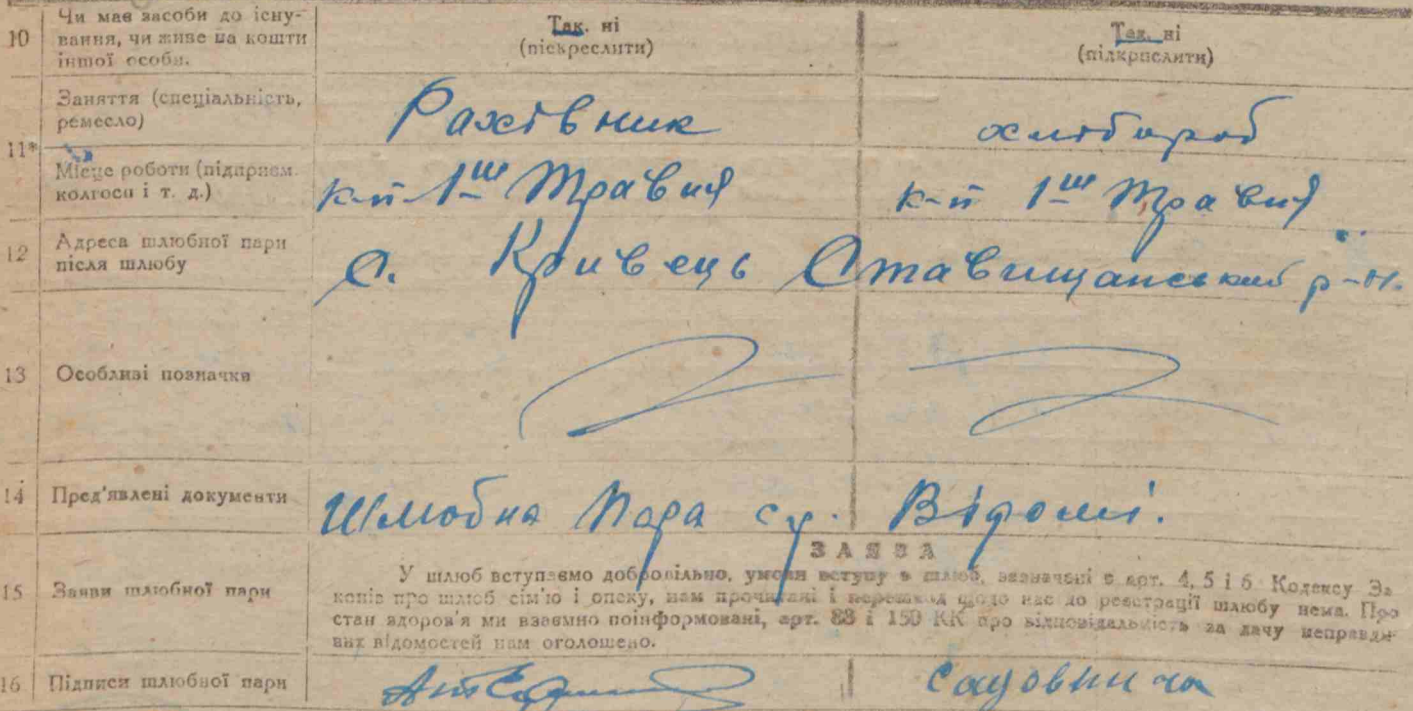 10 Чи має засоби до існу-
вання, чи живе на кошти
іншої особи.
Так. ні
(піскреслити)
Так. ні
(підкрислити)
11* Заняття (спеціальність,
ремесло)
Рахівник
хлібороб
Місце роботи (підприєм.
колгосп і т. д.)
к-п 1ш Травня
к-п 1ш Травня
12 Адреса шлюбної пари
після шлюбу
С. Кривець Ставищанський р-н.
13 Особливі позначки
14 Пред'явлені документи
Шлюбна Пара с/р. Відомі.
15 Заяви шлюбної пари
ЗАЯВА
У шлюб вступаємо добровільно, умови вступу в шлюб, зазначені в арт. 4, 5 і 6 Кодексу За
конів про шлюб сім'ю і опеку, нам прочитані і перешкод щодо нас до реєстрації шлюбу нема. Про
стан здоров'я ми взаємно поінформовані, арт. 88 і 150 КК про відповідальність за дачу неправди-
вих відомостей нам оголошено.
16 Підписи шлюбної пари